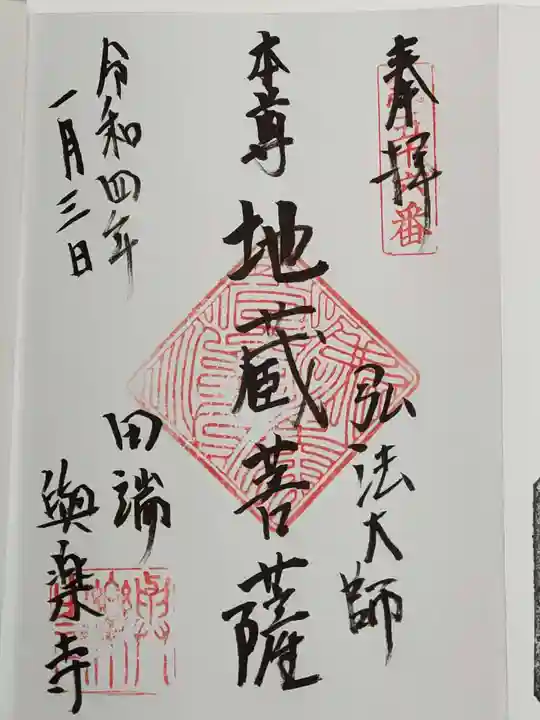 奉拝
弘法大師
本尊
地蔵菩薩
令和四年
一月三日
田端
與楽寺